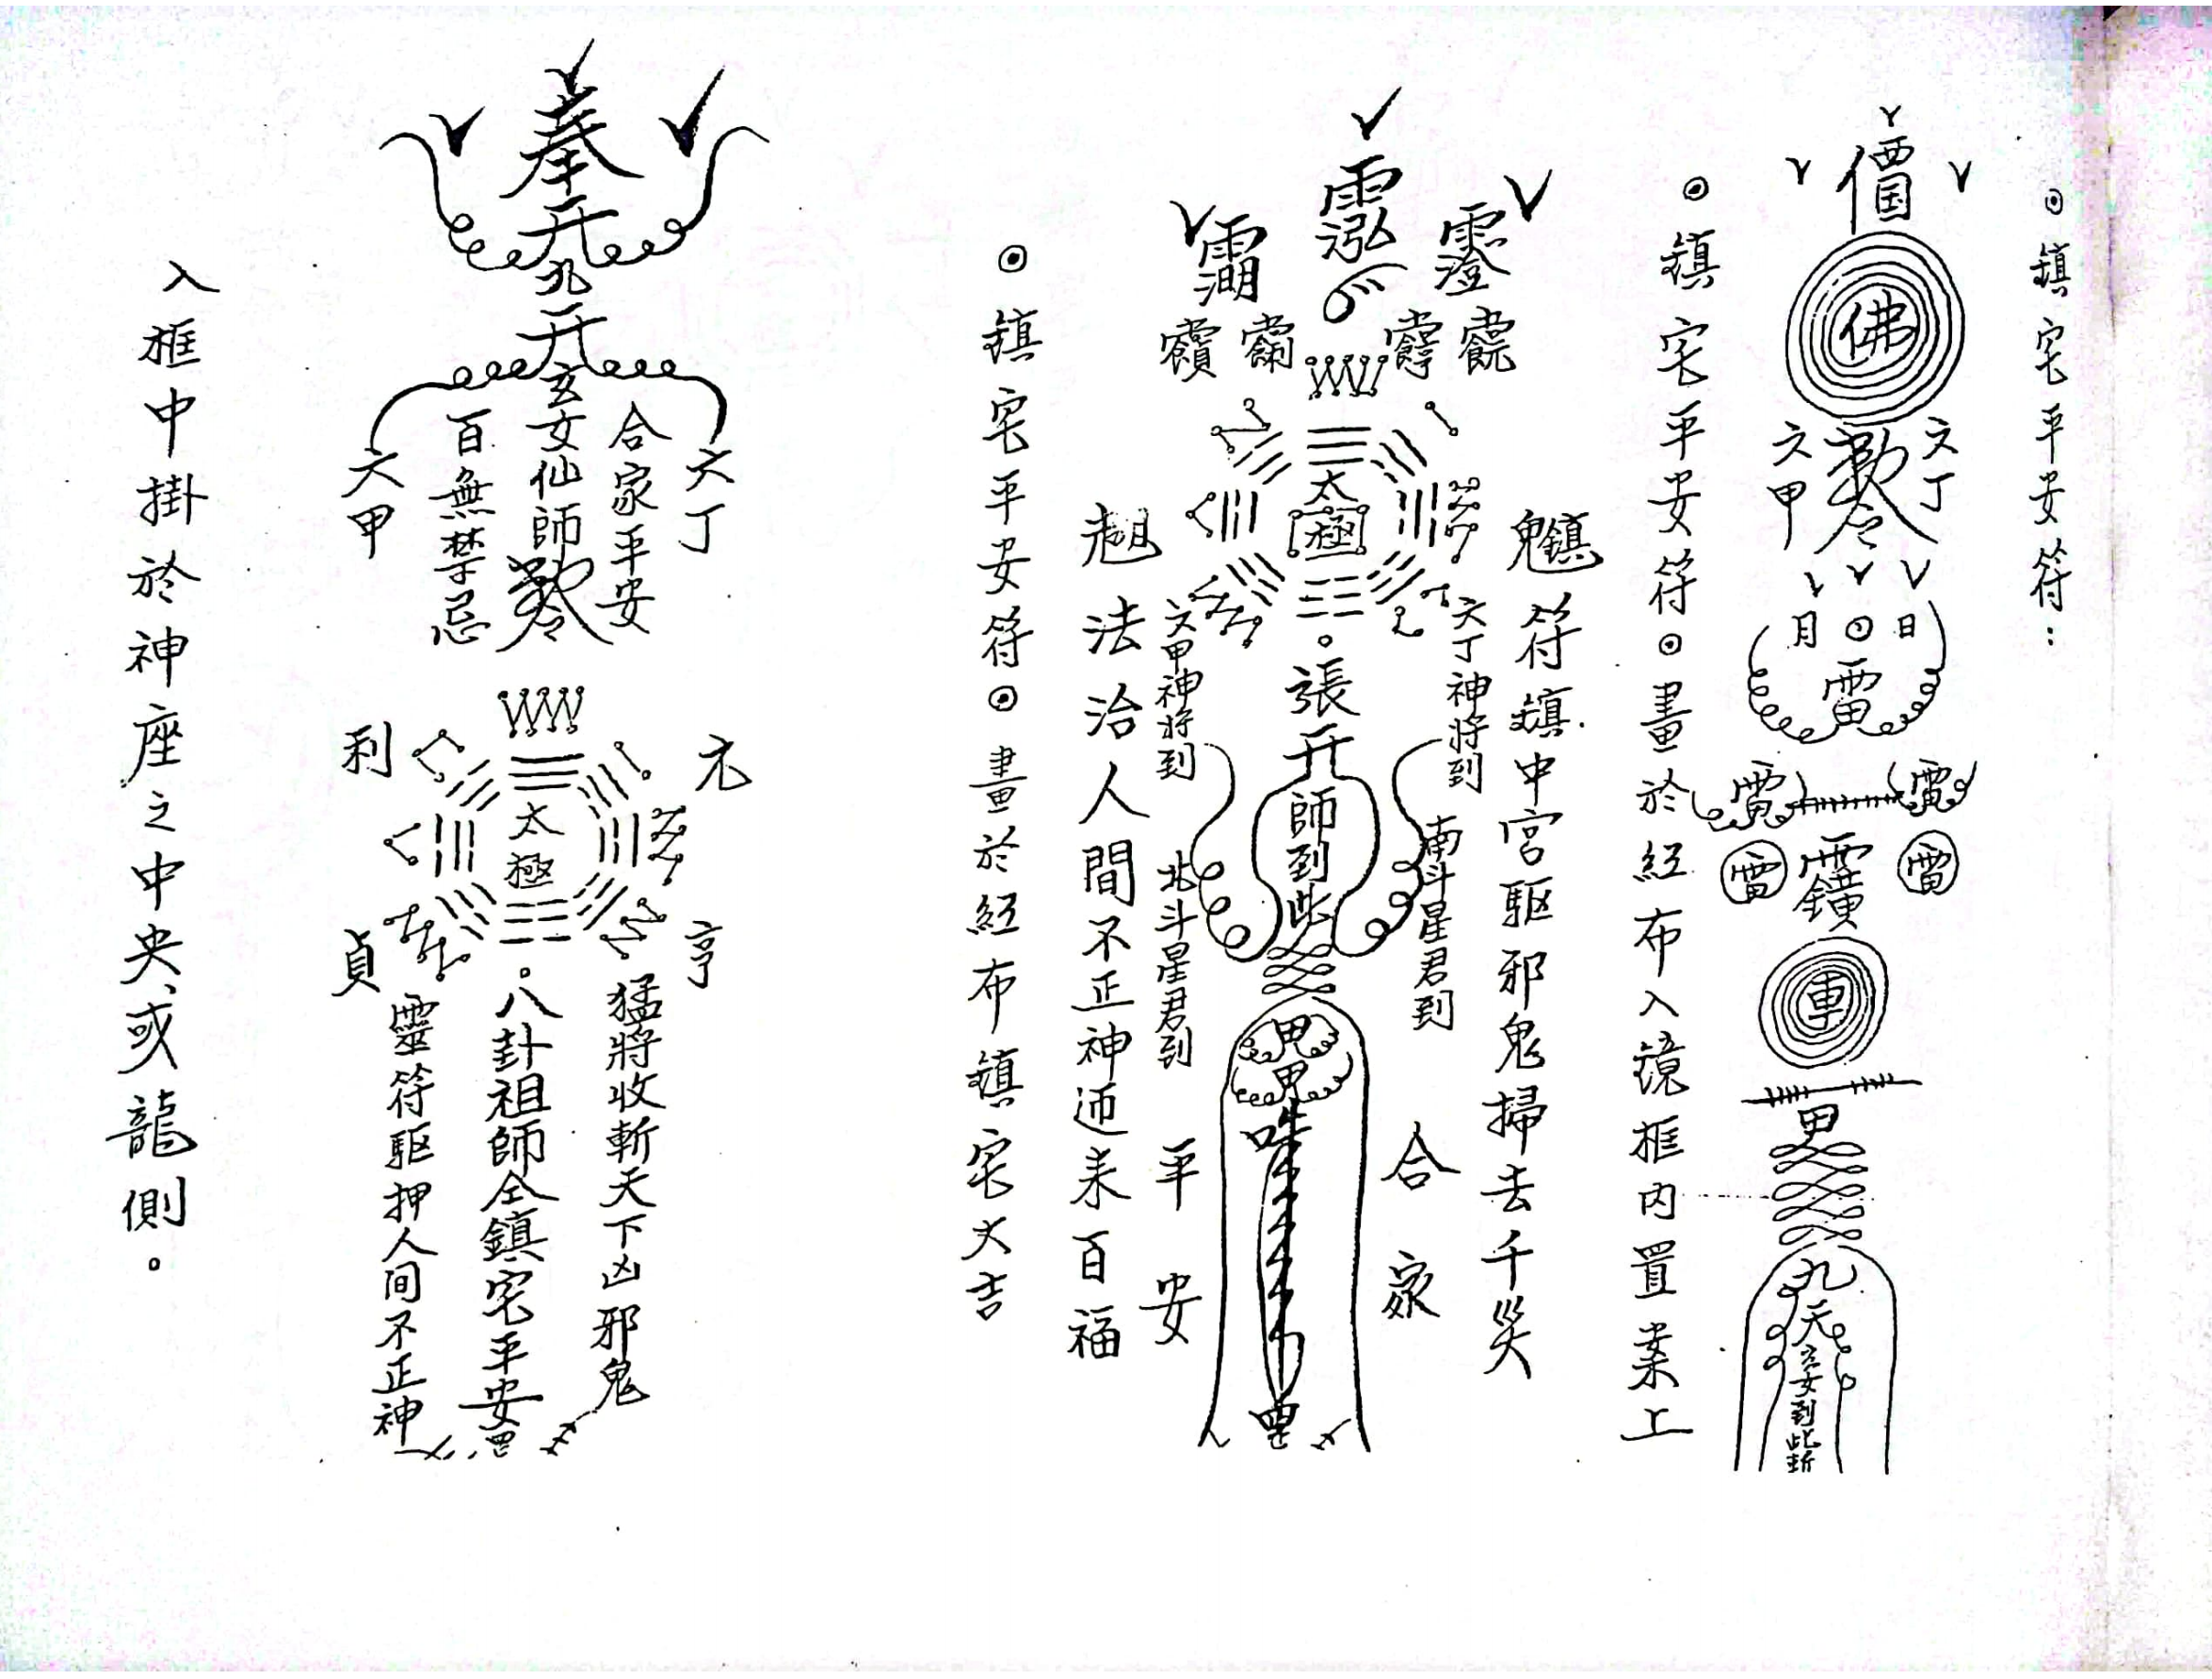 ⊙鎮宅平安符：
佛
六丁
六甲
勅令
日
月
雷
雷
雷
雷
雷
車
甲
九天玄女到此斬
⊙鎮宅平安符⊙畫於紅布入鏡框內置案上
太極
符鎮中宮驅邪鬼掃去千災
六丁神將到
南斗星君到
合家
張天師到此
甲
甲
六甲神將到
北斗星君到
平安
法治人間不正神迊来百福
⊙鎮宅平安符⊙畫於紅布鎮宅大吉
奉
九天玄女仙師勅令
六丁
合家平安
百無禁忌
六甲
太極
元
亨
利
貞
猛將收斬天下凶邪鬼
八卦祖師仝鎮宅平安罡
靈符驅押人间不正神
入框中掛於神座之中央、或龍側。